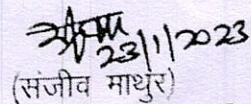 23/1/2023
(संजीव माथुर)